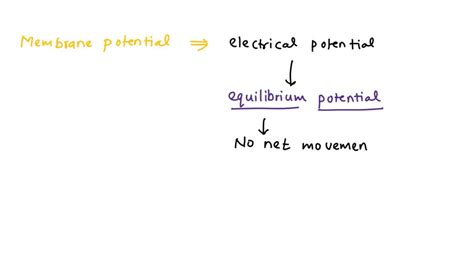 Membrane potential ⇒ electrical potential
↓
equilibrium potential
↓
No net movemen